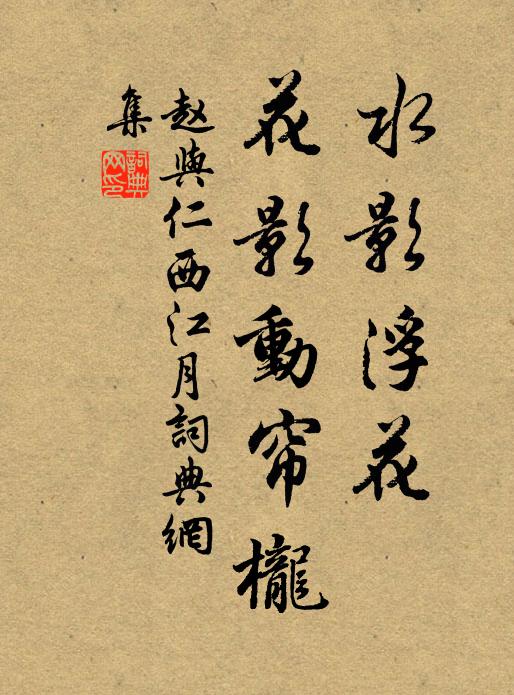 水影浮花
花影動帘櫳
赵與仁西江月詞典網
集
詞典网印